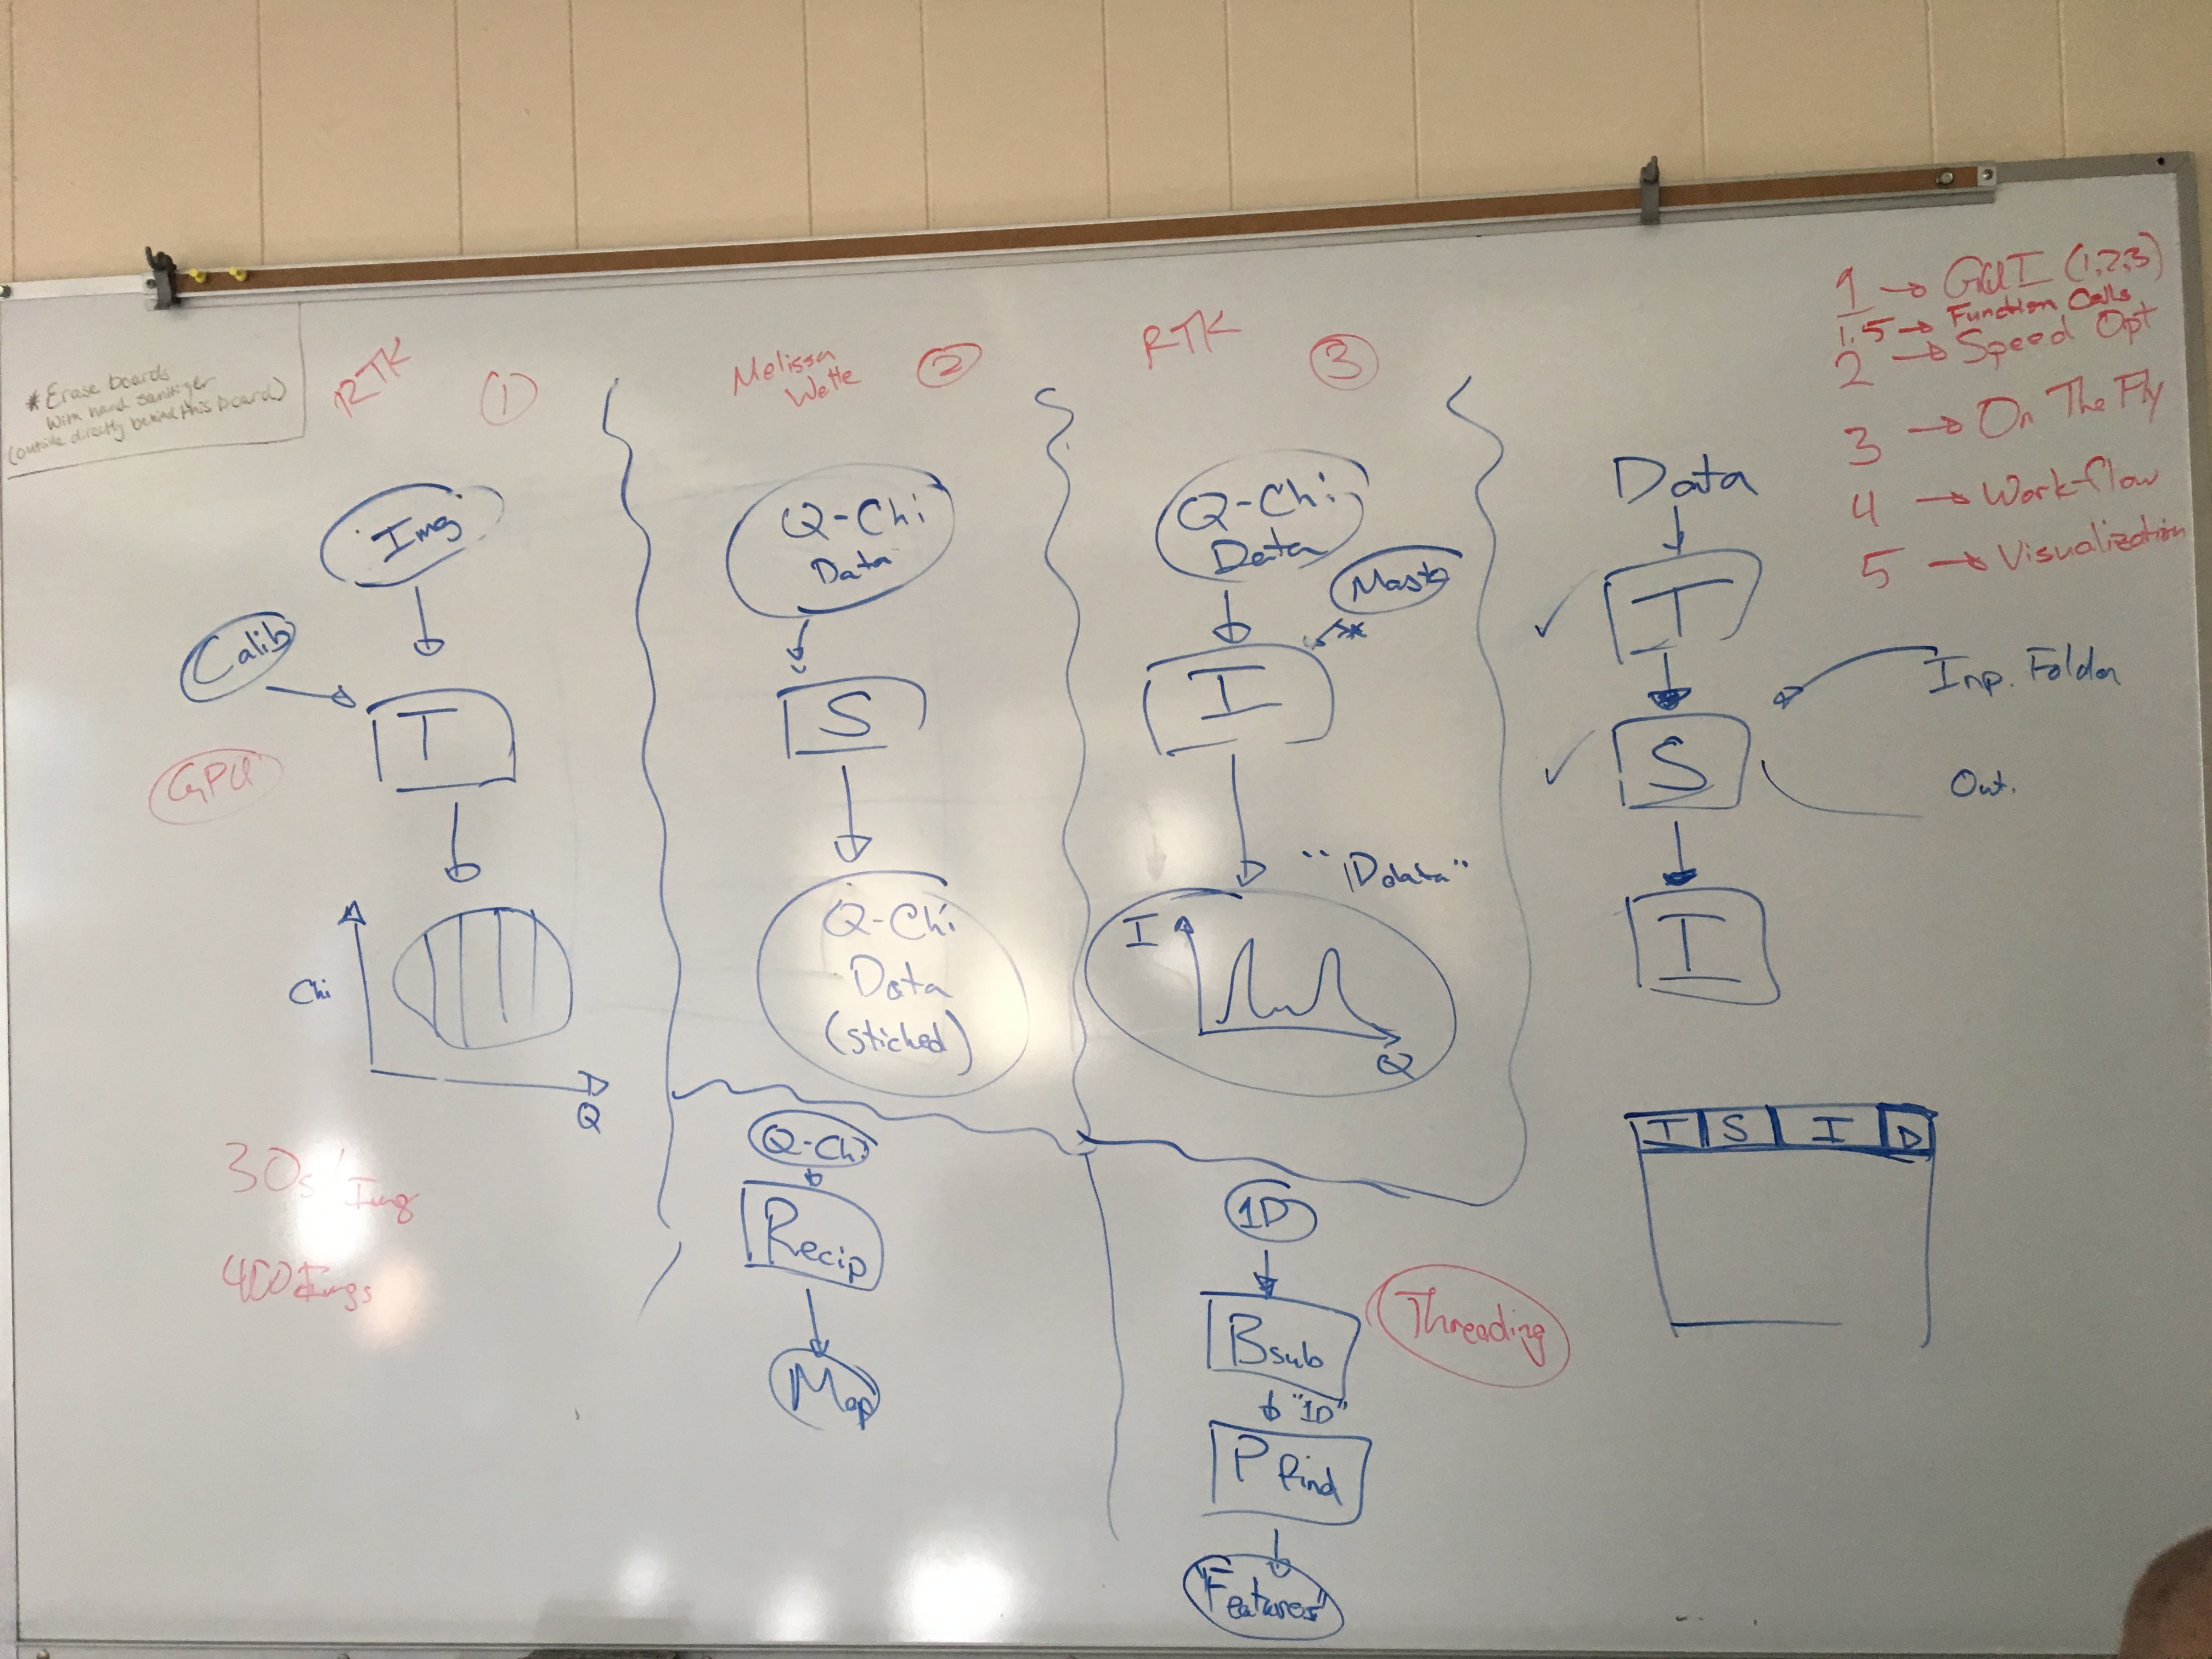 * Erase boards
with hand sanitizer
(outside directly behind this board)
RTK
1
Img
Calib
T
GPU
Chi
Q
30s/Img
400 Imgs
Melissa
Wette
2
Q-Chi
Data
S
Q-Chi
Data
(sticked)
Q-Chi
Recip
Map
RTK
3
Q-Chi
Data
Mask
*
I
"1D data"
I
Q
1D
Bsub
"1D"
P find
"Features"
Threading
Data
T
S
I
Inp. Folder
Out.
T S I D
1 → GUI (1,2,3)
1.5 → Function Calls
2 → Speed Opt
3 → On The Fly
4 → Workflow
5 → Visualization